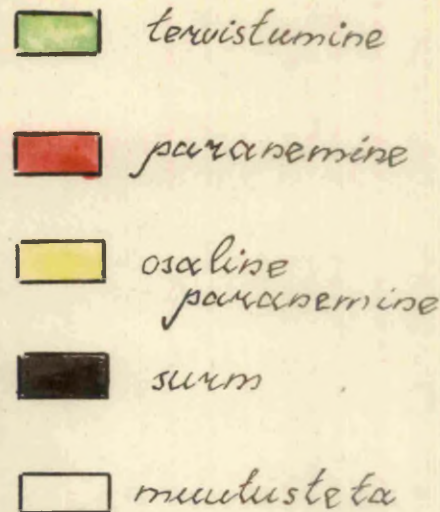 tervistumine
paranemine
osaline
paranemine
surm
muutusteta